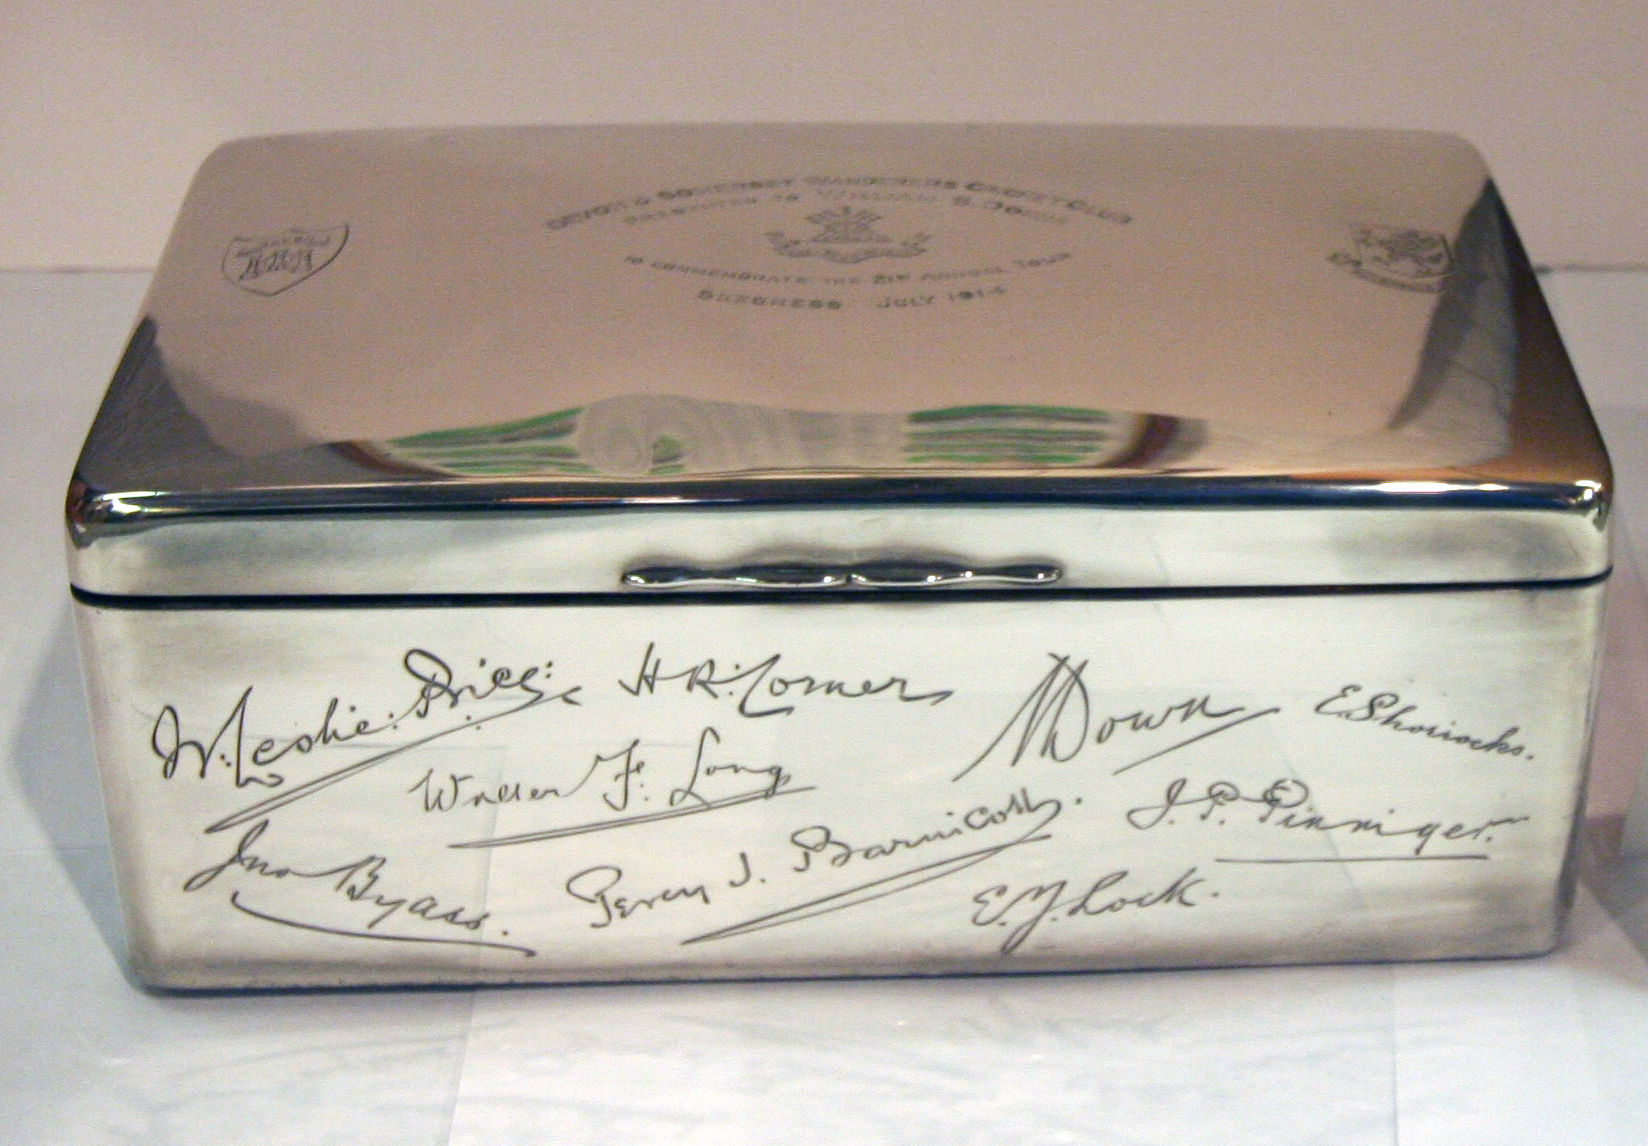 DEVON & SOMERSET WANDERERS CRICKET CLUB
PRESENTED TO WILLIAM S.
TO COMMEMORATE THE 21st ANNUAL TOUR
SKEGNESS JULY 1914
W. Leslie Price
H. R. Corner
Down
E. Shorrocks.
Walter F. Long
J. P. Pinniger.
Jno Byass.
Percy J. Barnicott.
E. J. Lock.